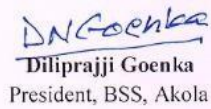 DNGoenka
Diliprajji Goenka
President, BSS, Akola